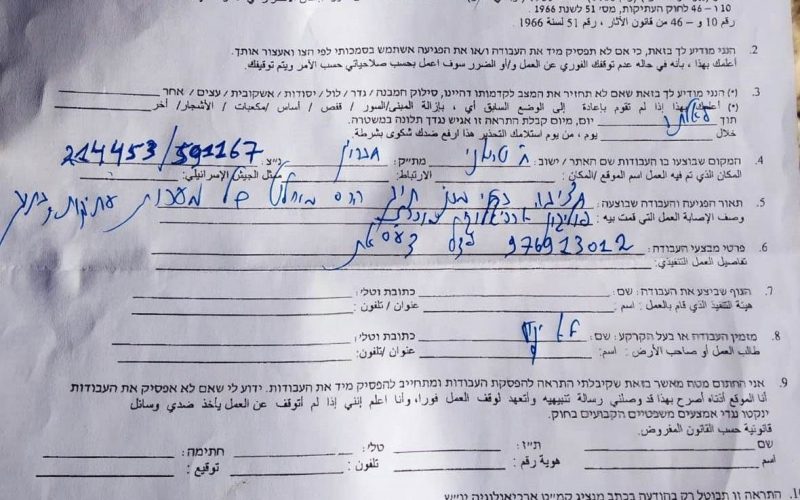 10 ו – 46 לחוק העתיקות, מס' 51 לשנת 1966
رقم 10 و – 46 من قانون الآثار ، رقم 51 لسنة 1966
2. הנני מודיע לך בזאת, כי אם לא תפסיק מיד את העבודה ו/או את הפגיעה אשתמש בסמכותי לפי הצו ואעצור אותך.
أعلمك بهذا ، بأنه في حاله عدم توقفك الفوري عن العمل و/أو الضرر سوف اعمل بحسب صلاحياتي حسب الأمر ويتم توقيفك.
3. (*) הנני מודיע לך בזאת שאם לא תחזיר את המצב לקדמותו דהיינו, סילוק המבנה / גדר / לול / יסודות / אשקובית / עצים / אחר
(*) أعلمك بهذا إذا لم تقوم بإعادة إلى الوضع السابق أي ، بإزالة المبنى/السور / قفص / أساس /مكعبات / الأشجار/ أخر
תוך יום, מיום קבלת התראה זו אגיש נגדך תלונה במשטרה.
خلال يوم ، من يوم استلامك التحذير هذا ارفع ضدك شكوى بشرطة.
4. המקום שבוצעו בו העבודות שם האתר / ישוב: מת"ק: חברון נ"צ: 214453/591167
المكان الذي تم فيه العمل اسم الموقع /المكان: الارتباط: ممثل الجيش الإسرائيلي:
5. תאור הפגיעה והעבודה שבוצעה: חציבה של מערות עתיקות
وصف الإصابة العمل التي قمت بيه:
6. פרטי מבצעי העבודה: 976913012
تفاصيل العمل التنفيذي:
7. הגוף שביצע את העבודה: שם: כתובת וטלי:
هيئة التنفيذ الذي قام بالعمل: اسم: عنوان / تلفون:
8. מזמין העבודה או בעל הקרקע: שם: לא ידוע כתובת וטלי:
طالب العمل أو صاحب الأرض: اسم: عنوان /تلفون:
9. אני החתום מטה מאשר בזאת שקיבלתי התראה להפסקת העבודות ומתחייב להפסיק מיד את העבודות. ידוע לי שאם לא אפסיק את העבודות
أنا الموقع أدناه أصرح بهذا قد وصلني رسالة تنبيهيه وأتعهد لوقف العمل فورا، وأنا اعلم إنني إذا لم أتوقف عن العمل يأخذ ضدي وسائل
ינקטו נגדי אמצעים משפטיים הקבועים בחוק.
قانونية حسب القانون المفروض.
שם ת"ז: טלי: חתימה:
اسم هوية رقم: تلفون توقيع:
10. התראה זו תבוטל רק בהודעה בכתב מנציג קמ"ט ארכיאולוגיה יו"ש